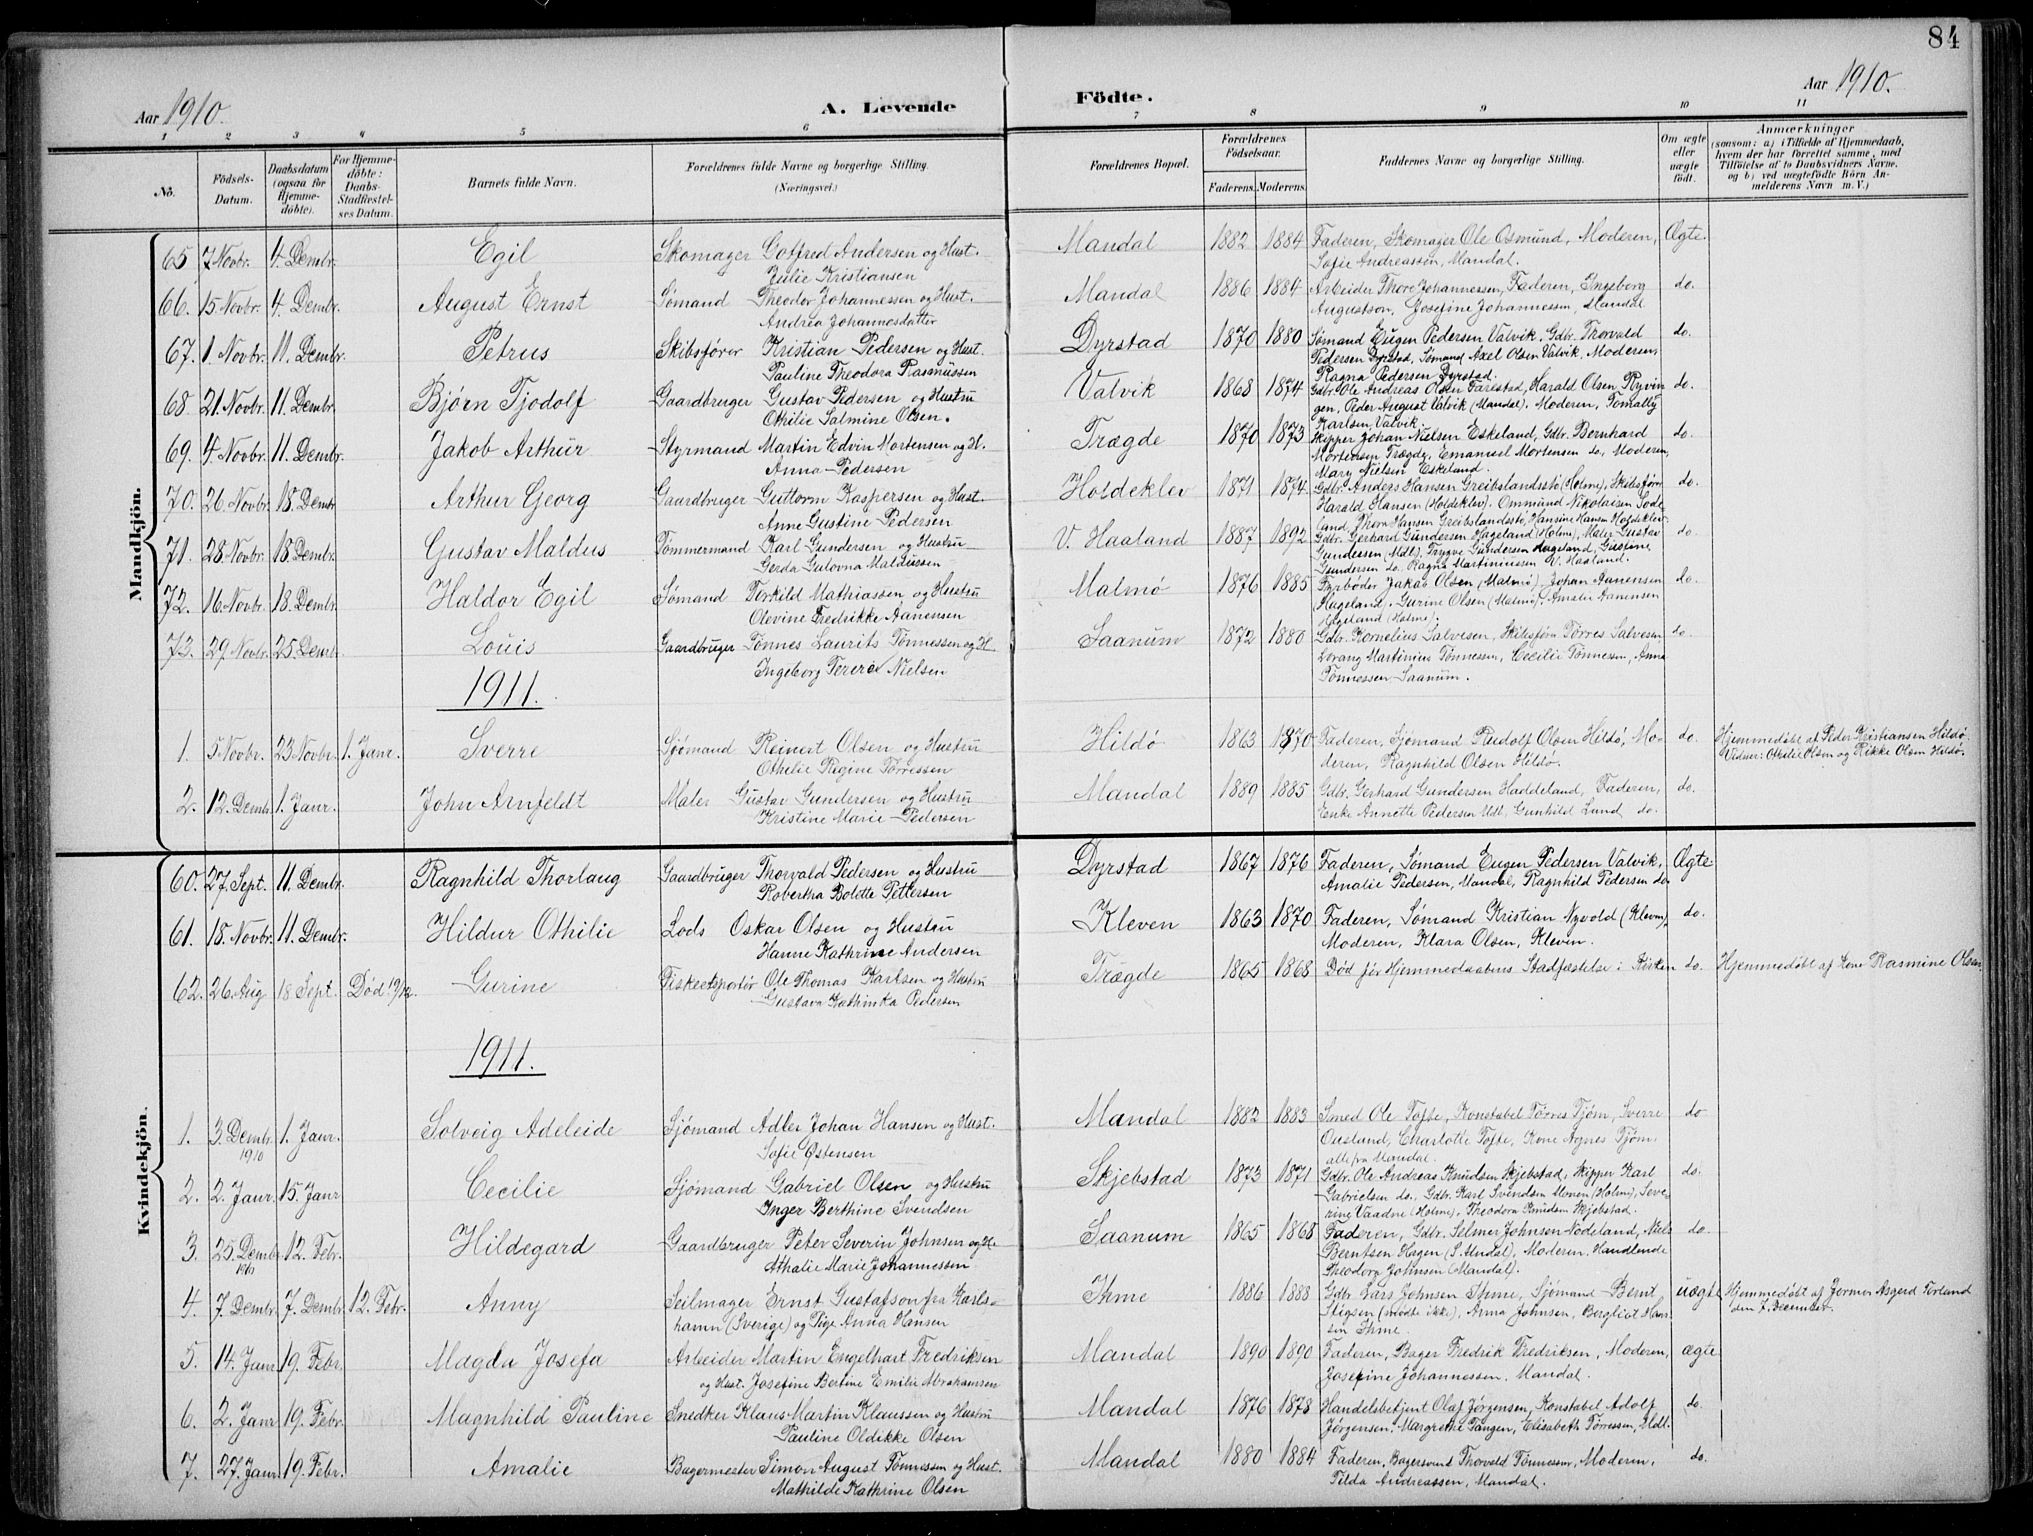 84
Aar 1910.
A. Levende
Födte.
Aar 1910.
1 2 3 4 5 6 7 8 9 10 11
No.
Födsels-Datum.
Daabsdatum (ogsaa for Hjemme-döbte).
For Hjemme-döbte: Daabs-Stadfæstel-ses Datum.
Barnets fulde Navn.
Forældrenes fulde Navne og borgerlige Stilling. (Næringsvei.)
Forældrenes Bopæl.
Forældrenes Födselsaar.
Faderens. Moderens.
Faddernes Navne og borgerlige Stilling.
Om ægte eller uægte födt.
Anmærkninger
(saasom: a) i Tilfælde af Hjemmedaab, hvem der har forrettet samme, med Tilföielse af to Daabsvidners Navne, og b) ved uægtefödte Börn An-melderens Navn m. V.)
Mandkjön.
65 7 Novbr. 4. Dembr. Egil Skomager Gotfred Andersen og Hust. Mandal 1882 1884 Faderen, Skomager Ole Osmund, Moderen, Ægte.
Julie Kristiansen Sofie Andreassen, Mandal.
66. 15. Novbr. 4. Dembr. August Ernst Sømand Theodor Johannessen og Hust. Mandal 1886 1884 Arbeider Thore Johannessen, Faderen, Ingeborg do.
Andrea Johannesdatter Augustson, Josefine Johannessen, Mandal
67. 1. Novbr. 11. Dembr. Petrus Skibsfører Kristian Pedersen og Hust. Dyrstad 1870 1880 Sømand Eugen Pedersen Valvik, Gdbr. Thorvald do.
Pauline Theodora Rasmussen Pedersen Dyrstad, Sømand Axel Olsen Valvik, Moderen,
Ragna Pedersen Dyrstad.
68. 21. Novbr. 11. Dembr. Bjørn Tjodolf Gaardbruger Gustav Pedersen og Hustru Valvik 1868 1874 Gdbr. Ole Andreas Olsen Farestad, Harald Olsen Ryvin do.
Othilie Salmine Olsen. gen, Peder August Valvik (Mandal), Moderen, Tomally
Karlsen, Valvik.
69. 4. Novbr. 11. Dembr. Jakob Arthur Styrmand Martin Edvin Mortensen og H. Trægde 1870 1873 Skipper Johan Nielsen Eskeland, Gdbr. Bernhard do.
Anna Pedersen Mortensen Trægde, Emanuel Mortensen do, Moderen,
Mary Nielsen Eskeland.
70. 26. Novbr. 18. Dembr Arthur Georg Gaardbruger Guttorm Kaspersen og Hust. Holdeklev 1871 1874 Gdbr. Anders Hansen Greibslandsstø (Holme), Skibsfører do.
Anne Gustine Pedersen Harald Hansen (Holdeklev). Ommund Nikolaisen Sode
land, Thora Hansen Greibslandsstø, Hansine Hansen Holdeklev
71. 28. Novbr. 18. Dembr. Gustav Maldus Tømmermand Karl Gundersen og Hustru V. Haaland 1887 1892 Gdbr. Gerhard Gundersen Hageland (Holme), Maler Gustav do.
Gerda Gulovna Maldussen Gundersen (Mdl), Trygve Gundersen Hageland, Gustine
Gundersen do, Ragna Martiniussen V. Haaland.
72. 16. Novbr. 18. Dembr. Haldor Egil Sømand Torkild Mathiassen og Hustru Malmø 1876 1885 Fyrbøder Jakob Olsen (Malmø), Johan Aanensen do.
Olevine Fredrikke Aanensen Hageland, Gurine Olsen (Malmø), Amalie Aanensen
Hageland (Holme).
73. 29. Novbr. 25. Dembr. Louis Gaardbruger Tønnes Laurits Tønnessen og H. Saanum 1872 1880 Gdbr. Kornelius Salvesen, Skibsfører Tørres Salvesen do.
Ingeborg Terese Nielsen Lorang Martinius Tønnessen, Cecilie Tønnessen, Anna
Tønnessen Saanum.
1911.
1. 5 Novbr. 23 Novbr. 1. Janr. Sverre Sjømand Reinert Olsen og Hustru Hildø 1863 1870 Faderen, Sjømand Rudolf Olsen Hildø, Mo- do. Hjemmedøbt af Peder Kristiansen Hildø.
Othelie Regine Tørressen deren, Ragnhild Olsen Hildø. Vidner: Othilie Olsen og Rikke Olsen Hildø.
2. 12. Dembr. 1. Janr. John Arnfeldt Maler Gustav Gundersen og Hustru Mandal 1889 1885 Gdbr. Gerhard Gundersen Haddeland, Faderen, do.
Kristine Marie Pedersen Enke Annette Pedersen Mdl, Gunhild Lund do.
Kvindekjön.
60. 27. Sept. 11. Dembr. Ragnhild Thorlaug Gaardbruger Thorvald Pedersen og Hustru Dyrstad 1867 1876 Faderen, Sømand Eugen Pedersen Valvik, Ægte
Robertha Bolette Pettersen Amalie Pedersen, Mandal, Ragnhild Pedersen do.
61. 18. Novbr. 11. Dembr. Hildur Othilie Lods Oskar Olsen og Hustru Kleven 1863 1870 Faderen, Sømand Kristian Nyvold (Kleven), do.
Hanne Kathrine Andersen Moderen, Klara Olsen, Kleven.
62. 26. Aug 18 Sept. Død 19/12. Gurine Fiskeexportør Ole Thomas Karlsen og Hustru Trægde 1865 1868 Død før Hjemmedaabens Stadfæstelse i Kirken do. Hjemmedøbt af Kone Rasmine Olsen
Gustava Kathinka Pedersen
1911.
1. 3. Dembr. 1. Janr. Solveig Adeleide Sjømand Adler Johan Hansen og Hust. Mandal 1882 1883 Smed Ole Tofte, Konstabel Tørres Tjøm, Sverre do
1910 Sofie Østensen Ousland, Charlotte Tofte, Kone Agnes Tjøm.
alle fra Mandal.
2. 2. Janr. 15. Janr Cecilie Sjømand Gabriel Olsen og Hustru Skjebstad 1873 1871 Gdbr. Ole Andreas Knudsen Skjebstad, Skipper Karl do.
Inger Berthine Svendsen Gabrielsen do, Gdbr. Karl Svendsen Monen (Holme), Seve-
rine Vaadne (Holme), Theodora Knudsen Skjebstad.
3. 25. Dembr 12. Febr. Hildegard Gaardbruger Peter Severin Johnsen og H. Saanum 1865 1868 Faderen, Gdbr. Selmer Johnsen Nodeland, Niels do.
1910 Athalie Marie Johannessen Berntsen Hagen (S. Undal), Moderen, Handlende
Theodora Johnsen (Mandal).
4. 7. Dembr. 7. Dembr. 12. Febr. Anny Seilmager Ernst Gustafson fra Karls- Ihme 1886 1888 Gdbr. Lars Johnsen Ihme, Sjømand Bernt uægte Hjemmedøbt af Jormor Asgerd Forland
hamn (Sverige) og Pige Anna Hansen Stigsen (mødte ikke), Anna Johnsen, Bergliot Han- den 7. December.
sen Ihme.
5. 14. Janr 19. Febr. Magda Josefa Arbeider Martin Engelhart Fredriksen Mandal 1890 1890 Faderen, Bager Fredrik Fredriksen, Moderen, ægte
og Hust. Josefine Bertine Emilie Abrahamsen Josefine Johannessen, Mandal.
6. 2. Janr 19. Febr. Magnhild Pauline Snedker Klaus Martin Klaussen og Hustru Mandal 1876 1878 Handelsbetjent Olaf Jørgensen, Konstabel Adolf do.
Pauline Oldikke Olsen Jørgensen, Margrethe Tangen, Elisabeth Tørressen, Mdl.
7. 27. Janr 19. Febr. Amalie Bagermester Simon August Tønnessen og Hust. Mandal 1880 1884 Faderen, Bagersvend Thorvald Tønnessen, Moderen, do.
Mathilde Kathrine Olsen Tilda Andreassen, Mandal.